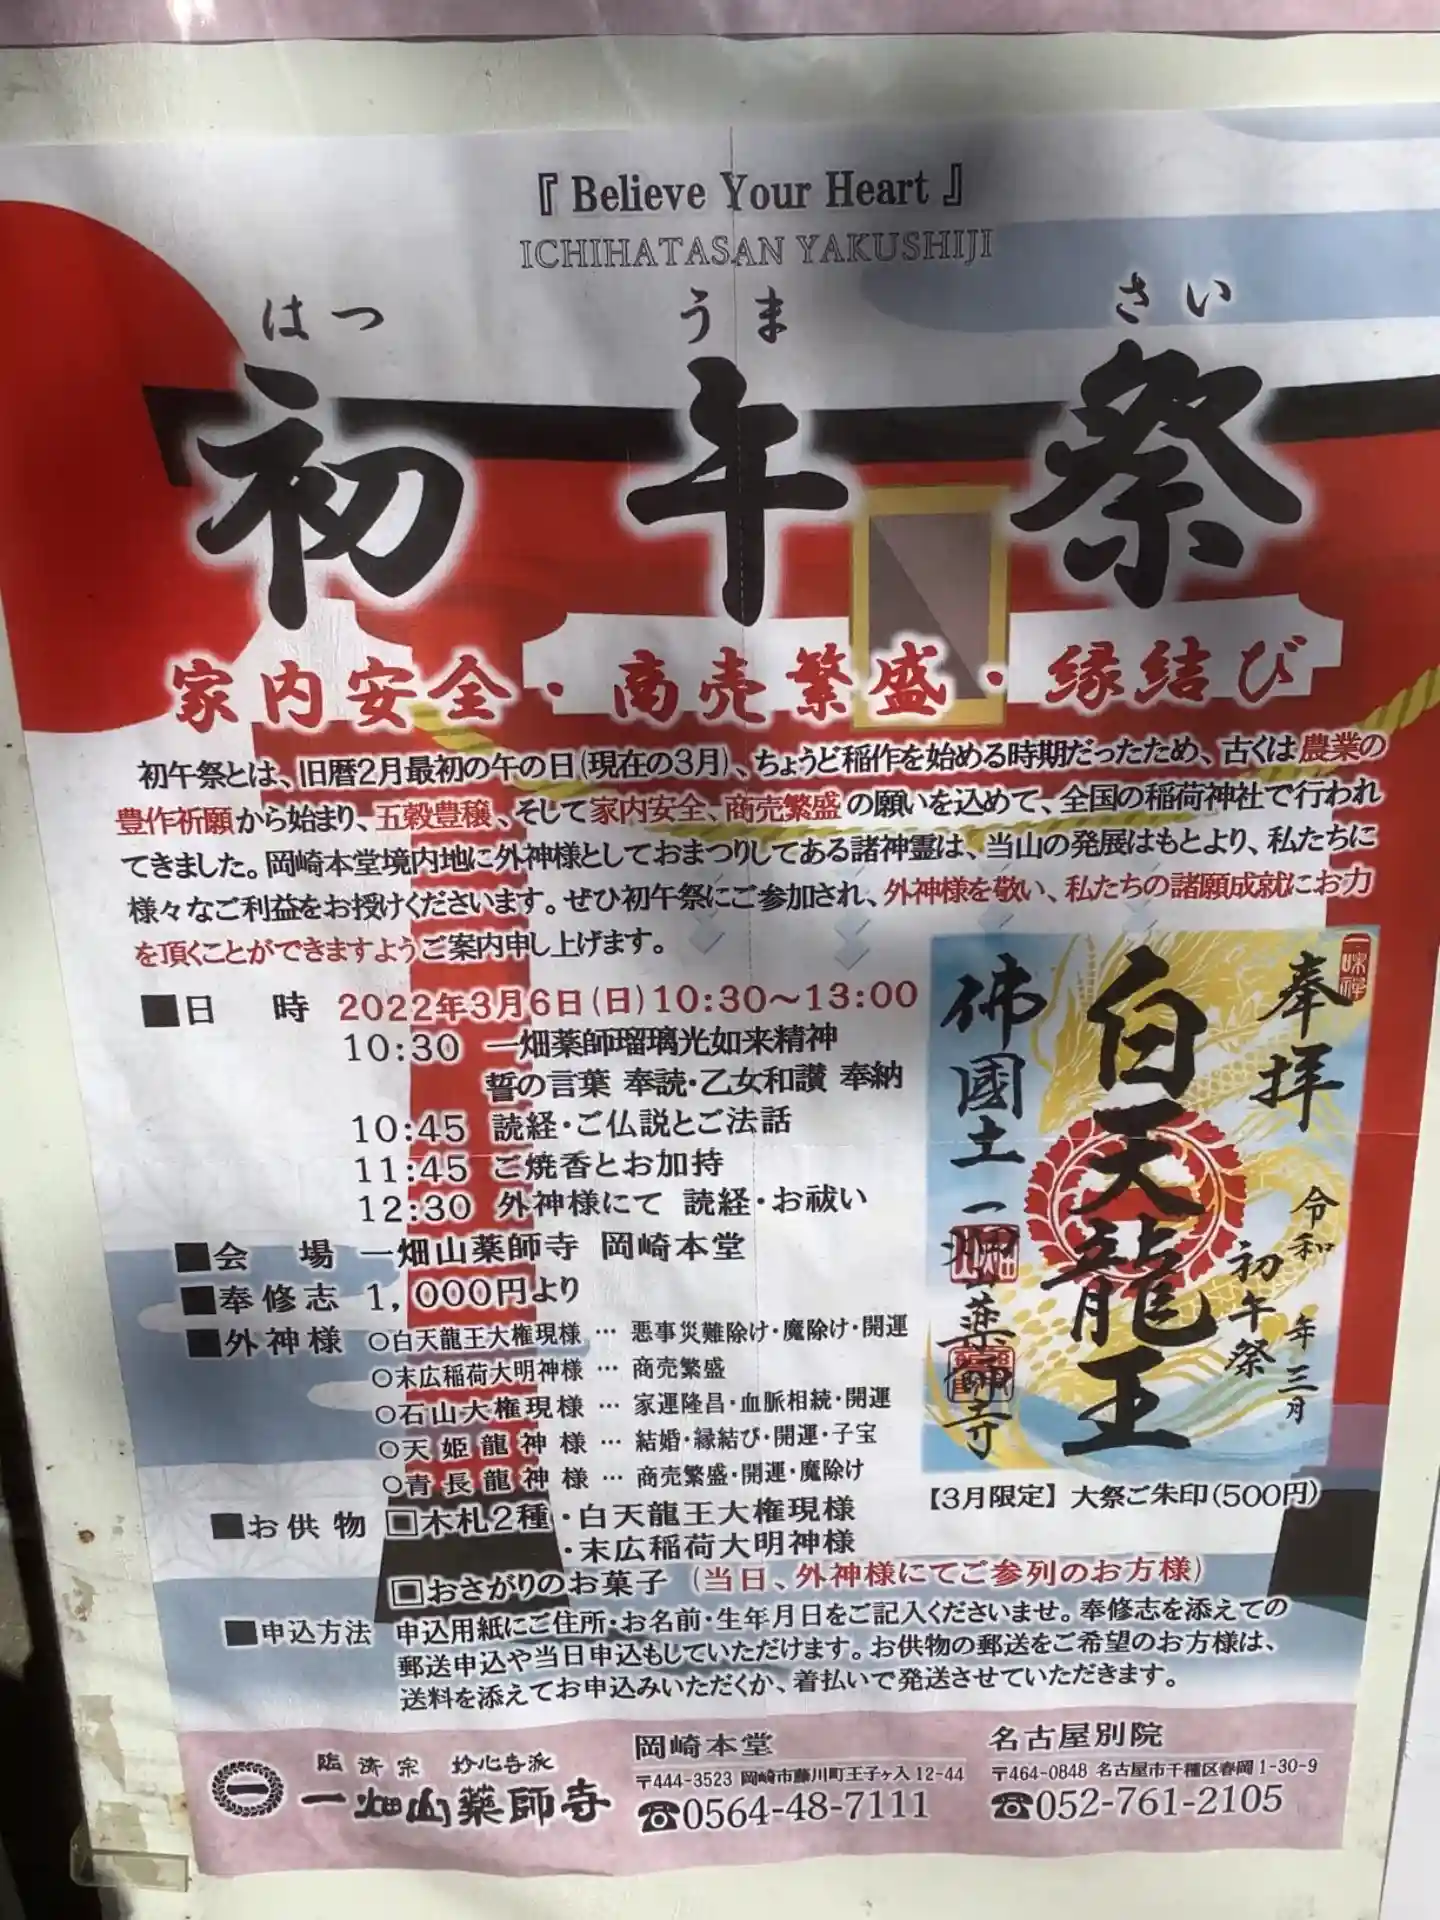 『 Believe Your Heart 』
ICHIHATASAN YAKUSHIJI
はつ うま さい
初午祭
家内安全・商売繁盛・縁結び
初午祭とは、旧暦2月最初の午の日(現在の3月)、ちょうど稲作を始める時期だったため、古くは農業の
豊作祈願から始まり、五穀豊穣、そして家内安全、商売繁盛の願いを込めて、全国の稲荷神社で行われ
てきました。岡崎本堂境内地に外神様としておまつりしてある諸神霊は、当山の発展はもとより、私たちに
様々なご利益をお授けくださいます。ぜひ初午祭にご参加され、外神様を敬い、私たちの諸願成就にお力
を頂くことができますようご案内申し上げます。
■日 時 2022年3月6日(日)10:30～13:00
10:30 一畑薬師瑠璃光如来精神
誓の言葉 奉読・乙女和讃 奉納
10:45 読経・ご仏説とご法話
11:45 ご焼香とお加持
12:30 外神様にて 読経・お祓い
■会 場 一畑山薬師寺 岡崎本堂
■奉修志 1,000円より
■外神様 ○白天龍王大権現様 … 悪事災難除け・魔除け・開運
○末広稲荷大明神様 … 商売繁盛
○石山大権現様 … 家運隆昌・血脈相続・開運
○天姫龍神様 … 結婚・縁結び・開運・子宝
○青長龍神様 … 商売繁盛・開運・魔除け
■お供物 □木札2種・白天龍王大権現様
・末広稲荷大明神様
□おさがりのお菓子 (当日、外神様にてご参列のお方様)
■申込方法 申込用紙にご住所・お名前・生年月日をご記入くださいませ。奉修志を添えての
郵送申込や当日申込もしていただけます。お供物の郵送をご希望のお方様は、
送料を添えてお申込みいただくか、着払いで発送させていただきます。
一味禅
奉拝
令和 年三月
初午祭
白天龍王
佛國土 一畑山薬師寺
【3月限定】大祭ご朱印(500円)
臨済宗 妙心寺派
一畑山薬師寺
岡崎本堂
〒444-3523 岡崎市藤川町王子ヶ入12-44
☎0564-48-7111
名古屋別院
〒464-0848 名古屋市千種区春岡1-30-9
☎052-761-2105